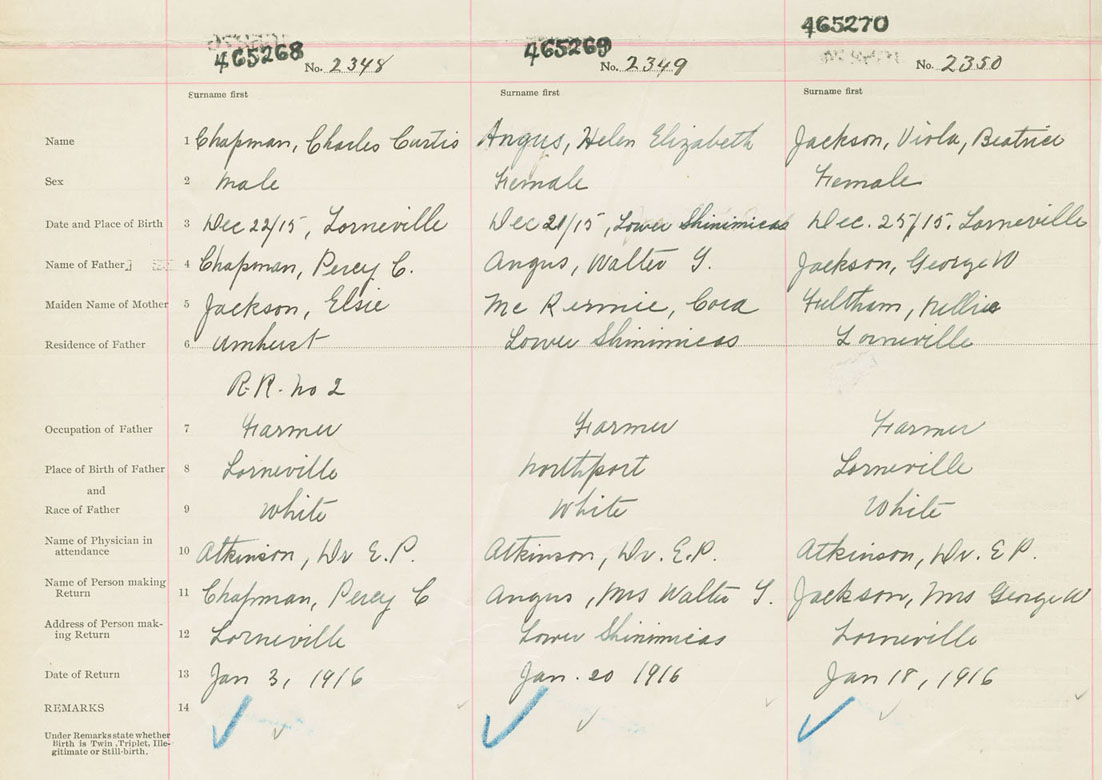 465268 465269 465270
No. 2348 No. 2349 No. 2350
Surname first Surname first Surname first
Name 1 Chapman, Charles Curtis Angus, Helen Elizabeth Jackson, Viola, Beatrice
Sex 2 Male Female Female
Date and Place of Birth 3 Dec 22/15, Lorneville Dec 21/15, Lower Shinimicas Dec. 25/15. Lorneville
Name of Father 4 Chapman, Percy C. Angus, Walter Y. Jackson, George W
Maiden Name of Mother 5 Jackson, Elsie Mc Kennie, Cora Fultham, Nellie
Residence of Father 6 Amherst Lower Shinimicas Lorneville
R.R. No 2
Occupation of Father 7 Farmer Farmer Farmer
Place of Birth of Father 8 Lorneville Northport Lorneville
and
Race of Father 9 White White White
Name of Physician in
attendance 10 Atkinson, Dr E.P. Atkinson, Dr. E.P. Atkinson, Dr. E P.
Name of Person making
Return 11 Chapman, Percy C Angus, Mrs Walter Y. Jackson, Mrs George W
Address of Person mak-
ing Return 12 Lorneville Lower Shinimicas Lorneville
Date of Return 13 Jan 3, 1916 Jan. 20 1916 Jan 18, 1916
REMARKS 14
Under Remarks state whether
Birth is Twin, Triplet, Ille-
gitimate or Still-birth.